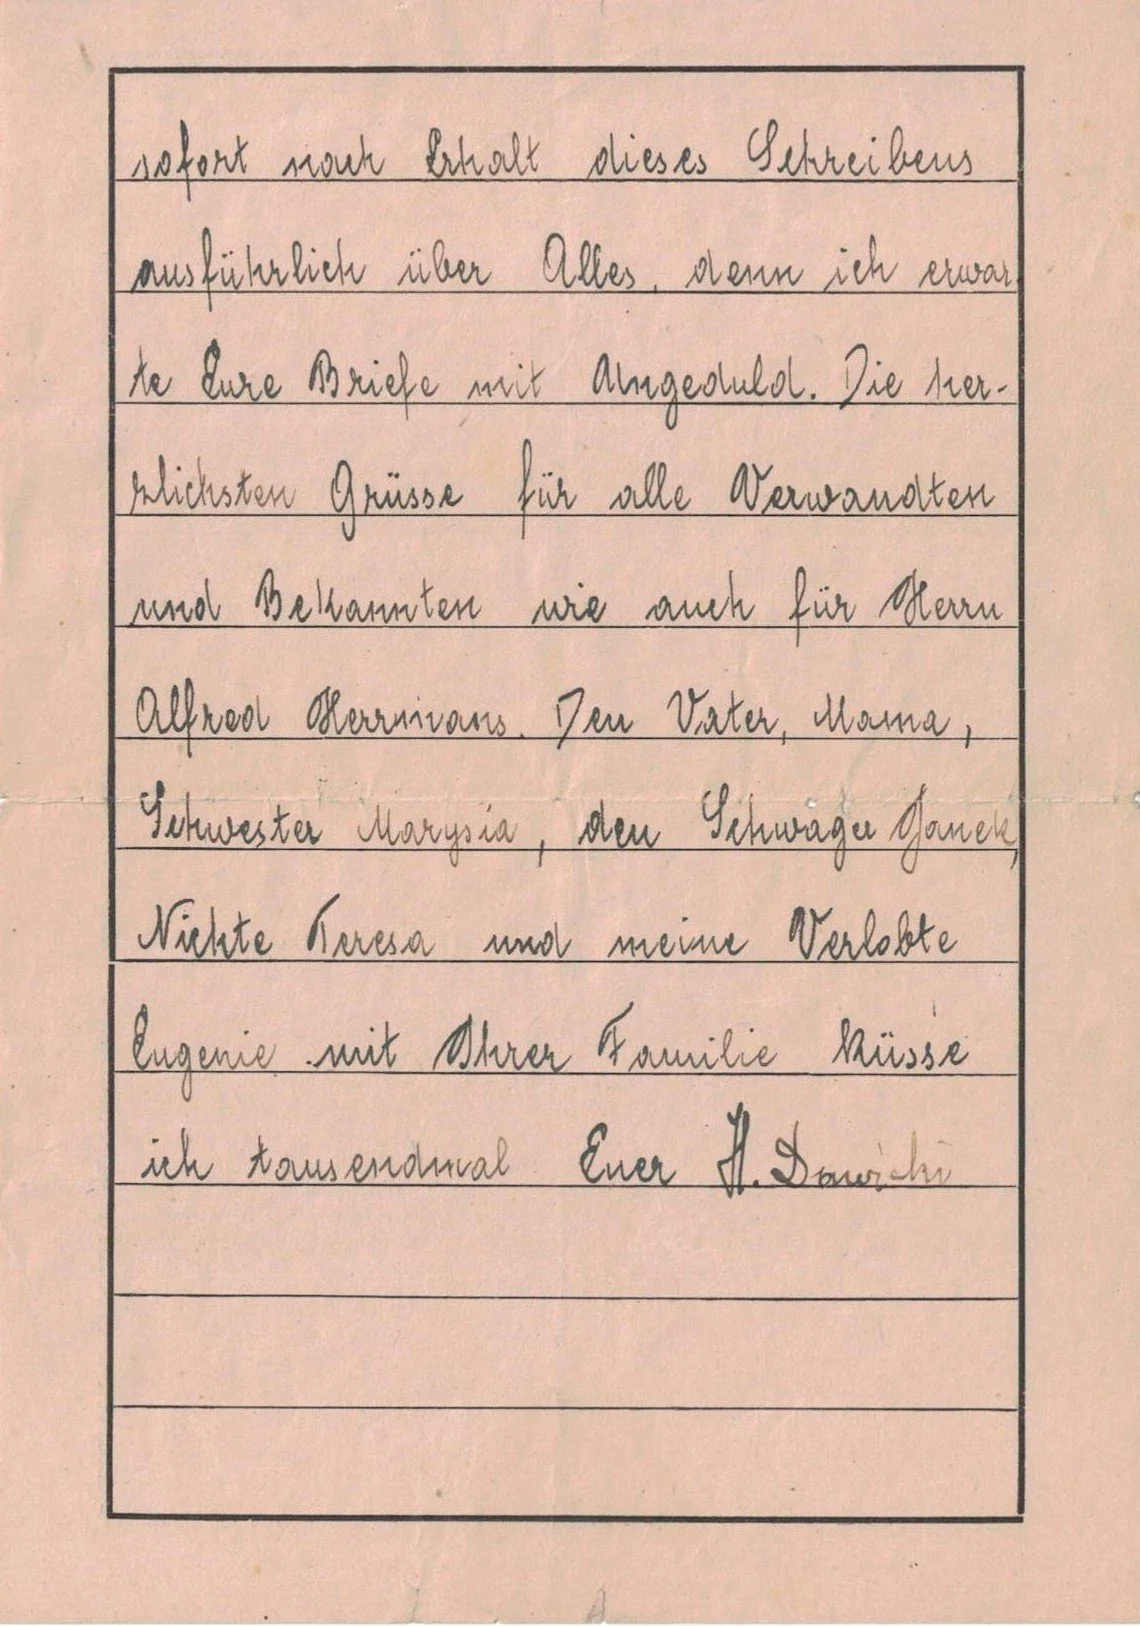 sofort nach Erhalt dieses Schreibens
ausführlich über Alles, denn ich erwar
te Eure Briefe mit Ungeduld. Die her-
zlichsten Grüsse für alle Verwandten
und Bekannten wie auch für Herrn
Alfred Herrmans. Den Vater, Mama,
Schwester Marysia, den Schwager Janek,
Nichte Teresa und meine Verlobte
Eugenie mit Ihrer Familie küsse
ich tausendmal Euer H.